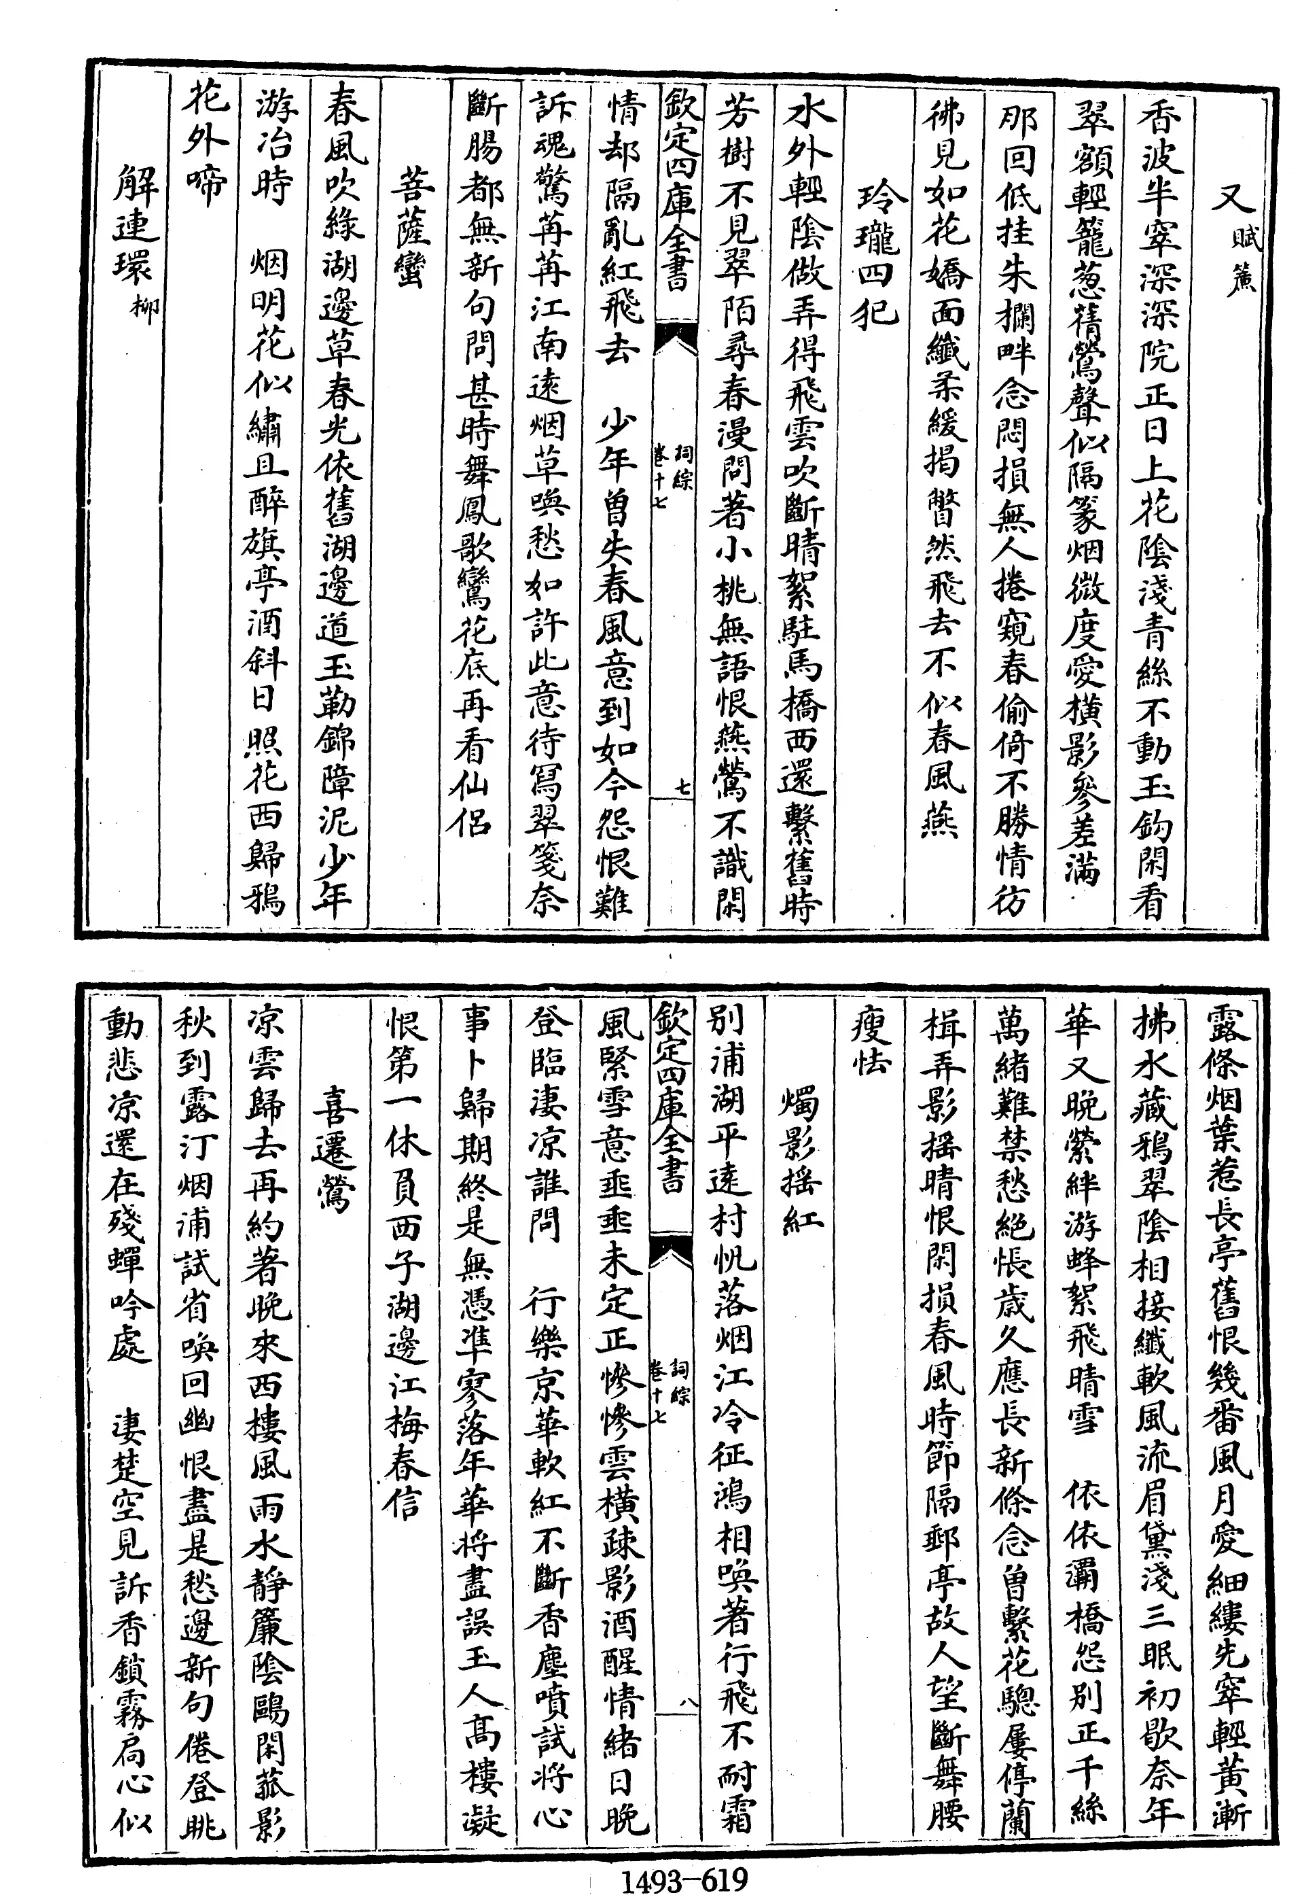 又賦簾
香波半窣深深院正日上花陰淺青絲不動玉鈎閑看
翠額輕籠葱蒨鶯聲似隔篆烟微度愛橫影參差滿
那回低挂朱攔畔念悶損無人捲窺春偷倚不勝情彷
彿見如花嬌面纖柔緩揭瞥然飛去不似春風燕
玲瓏四犯
水外輕陰做弄得飛雲吹斷晴絮駐馬橋西還繫舊時
芳樹不見翠陌尋春漫問著小桃無語恨燕鶯不識閑
欽定四庫全書
詞綜
卷十七
七
情却隔亂紅飛去　少年曽失春風意到如今怨恨難
訴魂驚苒苒江南遠烟草喚愁如許此意待寫翠箋奈
斷腸都無新句問甚時舞鳳歌鸞花底再看仙侶
菩薩蠻
春風吹綠湖邊草春光依舊湖邊道玉勒錦障泥少年
游冶時　烟明花似繡且醉旗亭酒斜日照花西歸鴉
花外啼
解連環柳
露條烟葉惹長亭舊恨幾番風月愛細縷先窣輕黃漸
拂水藏鴉翠陰相接纖軟風流眉黛淺三眠初歇奈年
華又晚縈絆游蜂絮飛晴雪　依依灞橋怨别正千絲
萬緒難禁愁絕悵歲久應長新條念曽繫花驄屢停蘭
楫弄影揺晴恨閑損春風時節隔郵亭故人望斷舞腰
瘦怯
燭影揺紅
别浦湖平遠村帆落烟江冷征鴻相喚著行飛不耐霜
欽定四庫全書
詞綜
卷十七
八
風緊雪意垂垂未定正慘慘雲橫疎影酒醒情緒日晚
登臨淒凉誰問　行樂京華軟紅不斷香塵噴試将心
事卜歸期終是無憑準寥落年華将盡誤玉人髙樓凝
恨第一休負西子湖邊江梅春信
喜遷鶯
凉雲歸去再約著晚來西樓風雨水靜簾陰鷗閑菰影
秋到露汀烟浦試省喚回幽恨盡是愁邊新句倦登眺
動悲凉還在殘蟬吟處　淒楚空見訴香鎖霧扄心似
1493-619